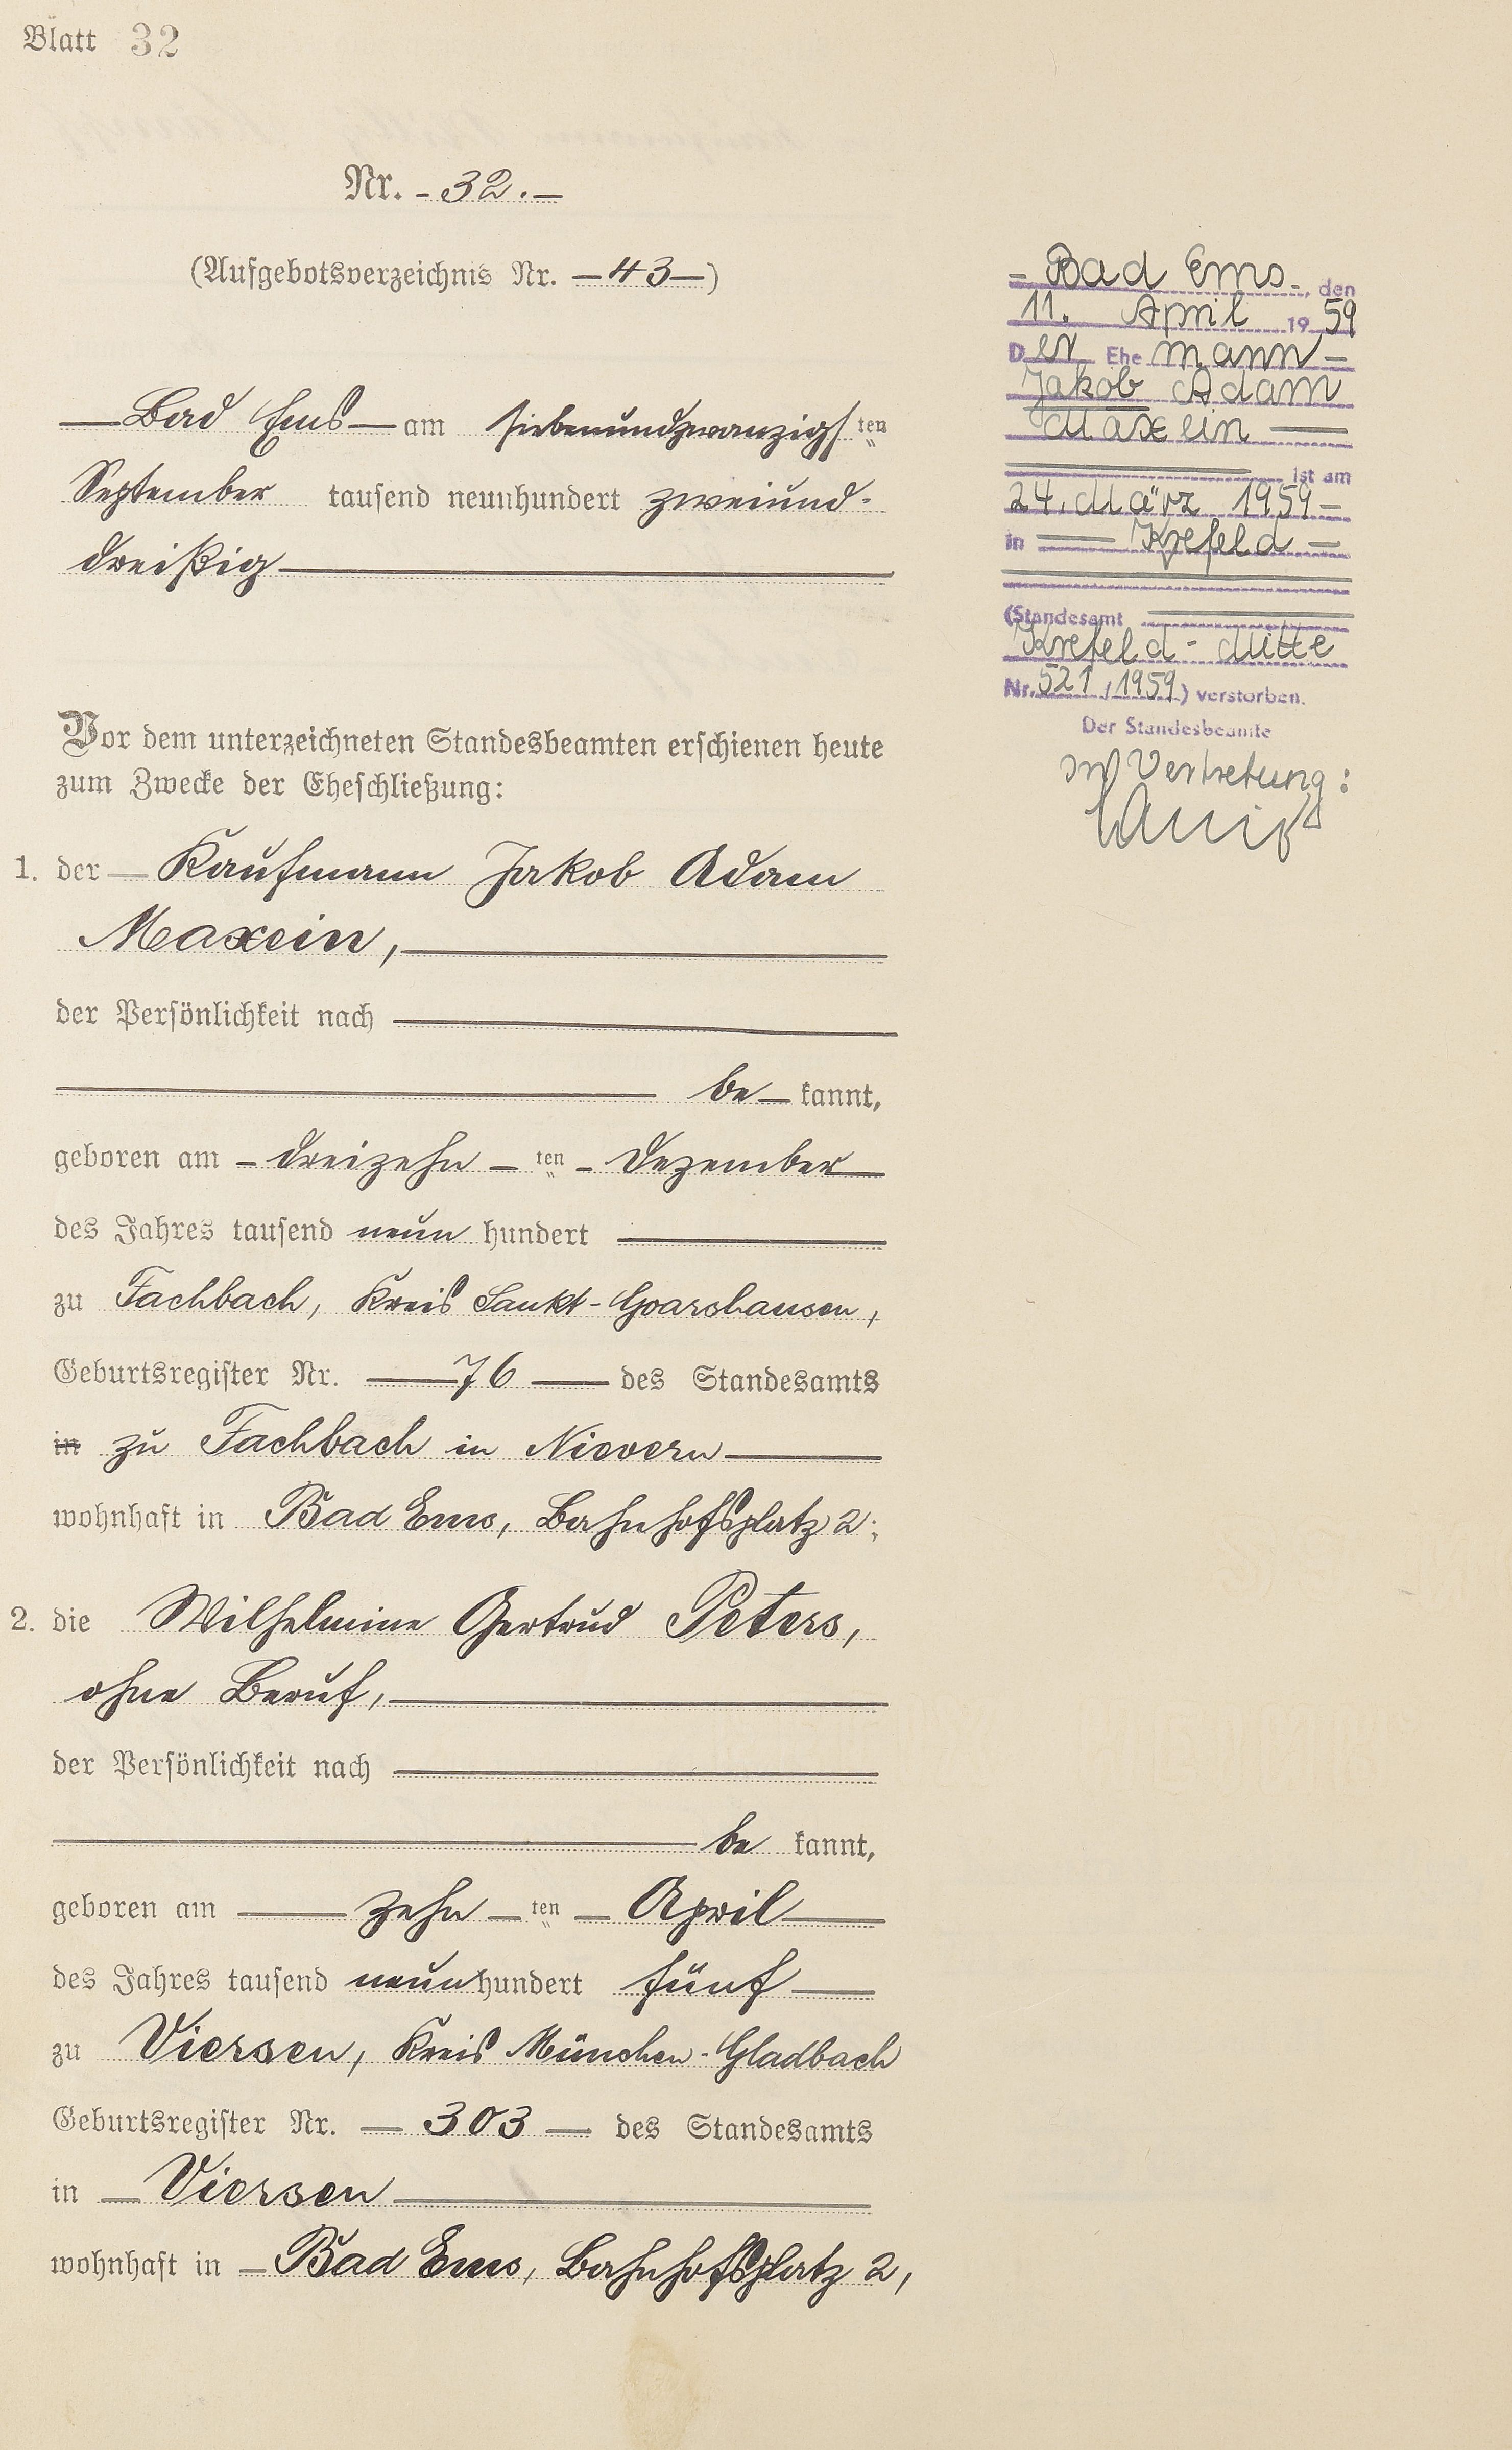 Blatt 32
Nr. - 32. -
(Aufgebotsverzeichnis Nr. - 43 -)
Bad Ems - am siebenundzwanzigsten
September tausend neunhundert zweiund-
dreißig
Vor dem unterzeichneten Standesbeamten erschienen heute
zum Zwecke der Eheschließung:
1. der Kaufmann Jakob Adam
Maxein,
der Persönlichkeit nach
be kannt,
geboren am - dreizehn - ten - Dezember
des Jahres tausend neun hundert
zu Fachbach, Kreis Sankt-Goarshausen,
Geburtsregister Nr. 76 des Standesamts
in zu Fachbach in Nievern
wohnhaft in Bad Ems, Bahnhofsplatz 2;
2. die Wilhelmine Gertrud Peters,
ohne Beruf,
der Persönlichkeit nach
be kannt,
geboren am zehn - ten - April
des Jahres tausend neunhundert fünf
zu Viersen, Kreis München-Gladbach
Geburtsregister Nr. - 303 - des Standesamts
in Viersen
wohnhaft in - Bad Ems, Bahnhofsplatz 2,
- Bad Ems -, den
11. April 1959
Der Ehemann -
Jakob Adam
Maxein
ist am
24. März 1959 -
in Krefeld -
(Standesamt
Krefeld - Mitte
Nr. 521 / 1959) verstorben.
Der Standesbeamte
In Vertretung: